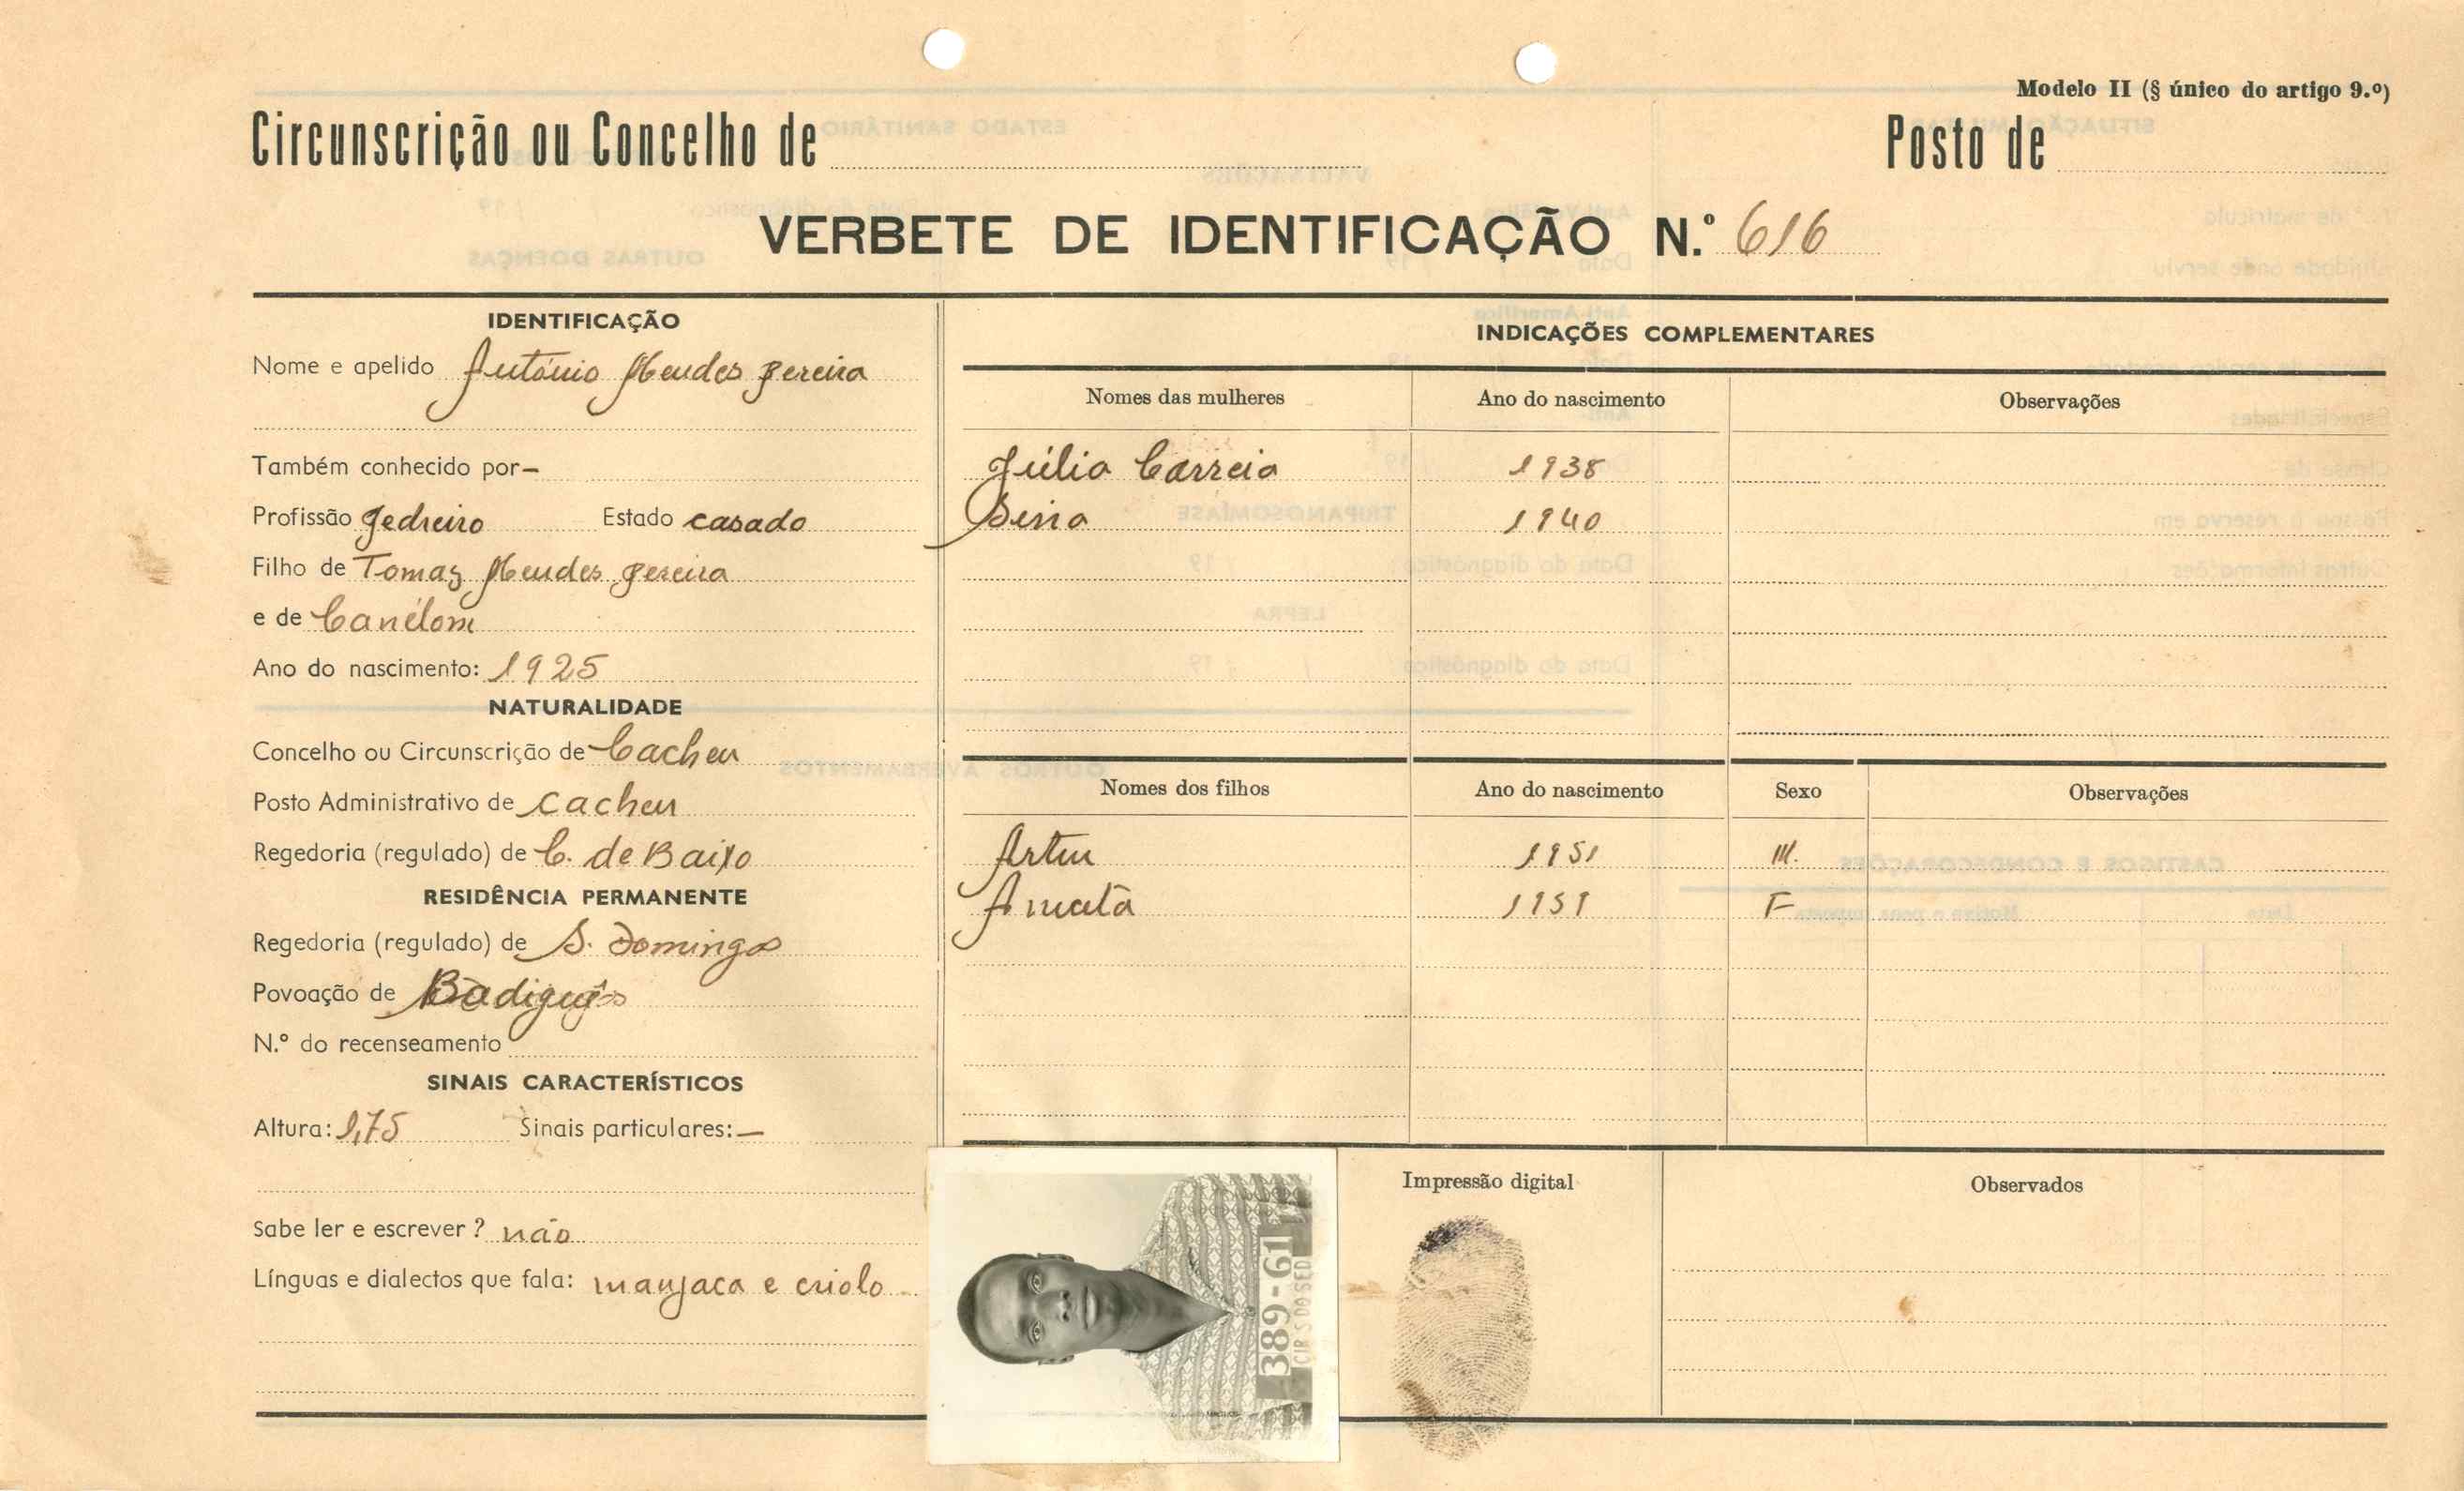 Modelo II (§ único do artigo 9.º)
Circunscrição ou Concelho de
Posto de
VERBETE DE IDENTIFICAÇÃO N.º 616
IDENTIFICAÇÃO
Nome e apelido António Mendes Pereira
Também conhecido por—
Profissão Pedreiro Estado casado
Filho de Tomaz Mendes Pereira
e de Canélom
Ano do nascimento: 1925
NATURALIDADE
Concelho ou Circunscrição de Cacheu
Posto Administrativo de Cacheu
Regedoria (regulado) de C. de Baixo
RESIDÊNCIA PERMANENTE
Regedoria (regulado) de S. Domingos
Povoação de
N.º do recenseamento
SINAIS CARACTERÍSTICOS
Altura: 1,75 Sinais particulares: —
Sabe ler e escrever? não
Línguas e dialectos que fala: manjaca e criolo
INDICAÇÕES COMPLEMENTARES
Nomes das mulheres Ano do nascimento Observações
Júlia Correia 1938
1940
Nomes dos filhos Ano do nascimento Sexo Observações
Artur 1951 M.
1959 F
389-61
CIR S DOSED
Impressão digital
Observados
ESTADO SANITÁRIO
VACINAÇÕES
OUTRAS DOENÇAS
TRIPANOSOMÍASE
Data do diagnóstico / / 19
LEPRA
Data do diagnóstico / / 19
OUTROS AVERBAMENTOS
CASTIGOS E CONDECORAÇÕES